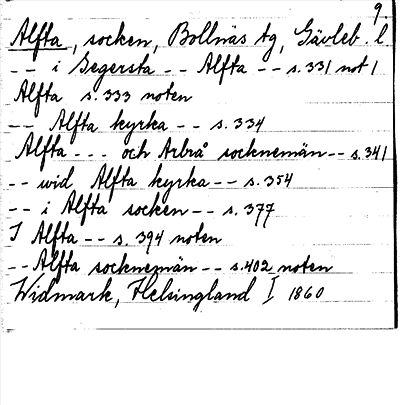 9.
Alfta, socken, Bollnäs tg, Gävleb. l
-- i Segersta -- Alfta -- s. 331 not 1
Alfta s. 333 noten
-- Alfta kyrka -- s. 334
Alfta --- och Arbrå socknemän -- s. 341
-- wid Alfta kyrka -- s. 354
-- i Alfta socken -- s. 377
I Alfta -- s. 394 noten
-- Alfta socknemän -- s. 402 noten
Widmark, Helsingland I 1860